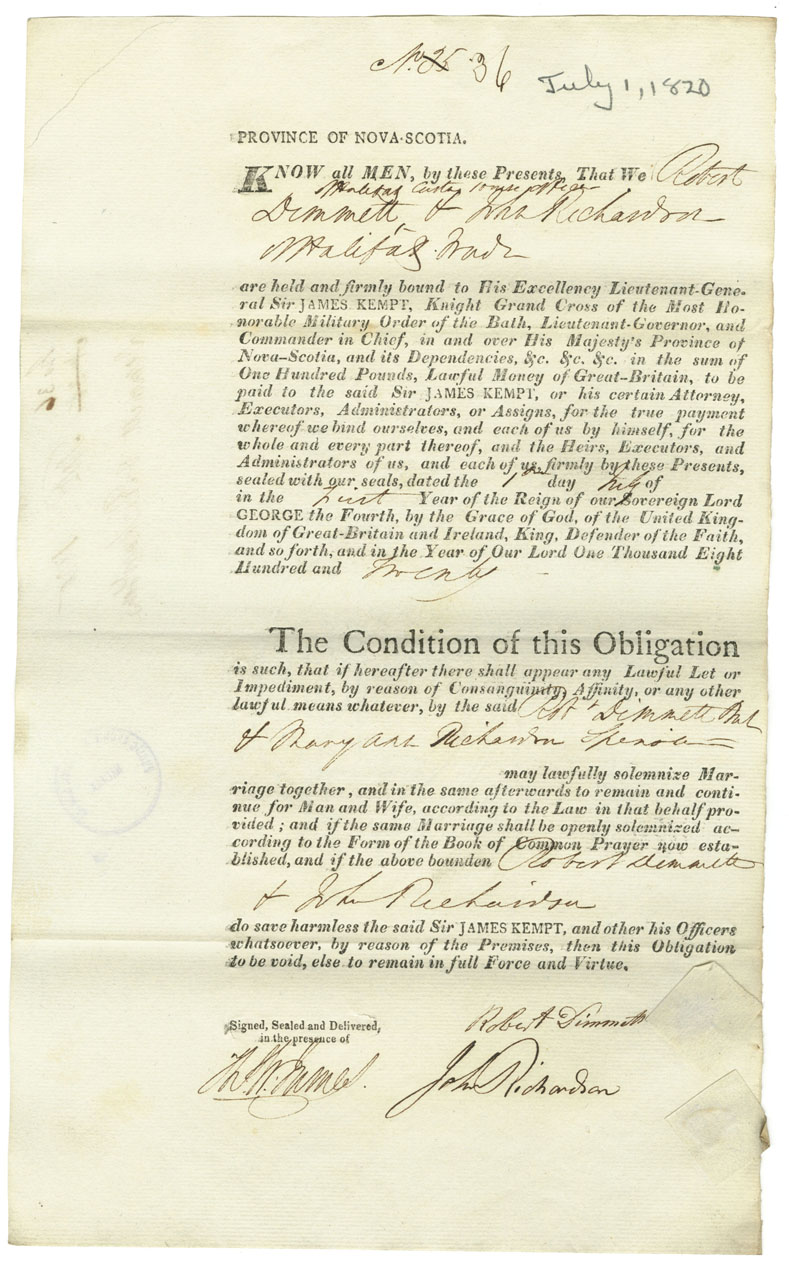 No. 25 36
July 1, 1820
PROVINCE OF NOVA-SCOTIA.
KNOW all MEN, by these Presents, That We Robert
of Halifax Custom House officer
Dimmett, & John Richardson
of Halifax
are held and firmly bound to His Excellency Lieutenant-Gene-
ral Sir JAMES KEMPT, Knight Grand Cross of the Most Ho-
norable Military Order of the Bath, Lieutenant-Governor, and
Commander in Chief, in and over His Majesty's Province of
Nova-Scotia, and its Dependencies, &c. &c. &c. in the sum of
One Hundred Pounds, Lawful Money of Great-Britain, to be
paid to the said Sir JAMES KEMPT, or his certain Attorney,
Executors, Administrators, or Assigns, for the true payment
whereof we bind ourselves, and each of us by himself, for the
whole and every part thereof, and the Heirs, Executors, and
Administrators of us, and each of us, firmly by these Presents,
sealed with our seals, dated the 1st day July of
in the First Year of the Reign of our Sovereign Lord
GEORGE the Fourth, by the Grace of God, of the United King-
dom of Great-Britain and Ireland, King, Defender of the Faith,
and so forth, and in the Year of Our Lord One Thousand Eight
Hundred and Twenty
The Condition of this Obligation
is such, that if hereafter there shall appear any Lawful Let or
Impediment, by reason of Consanguinity, Affinity, or any other
lawful means whatever, by the said Robt Dimmett
& Mary Ann Richardson Spinster
may lawfully solemnize Mar-
riage together, and in the same afterwards to remain and conti-
nue for Man and Wife, according to the Law in that behalf pro-
vided; and if the same Marriage shall be openly solemnized ac-
cording to the Form of the Book of Common Prayer now esta-
blished, and if the above bounden Robert Dimmett
& John Richardson
do save harmless the said Sir JAMES KEMPT, and other his Officers
whatsoever, by reason of the Premises, then this Obligation
to be void, else to remain in full Force and Virtue.
Signed, Sealed and Delivered,
in the presence of
Robert Dimmett
James
John Richardson